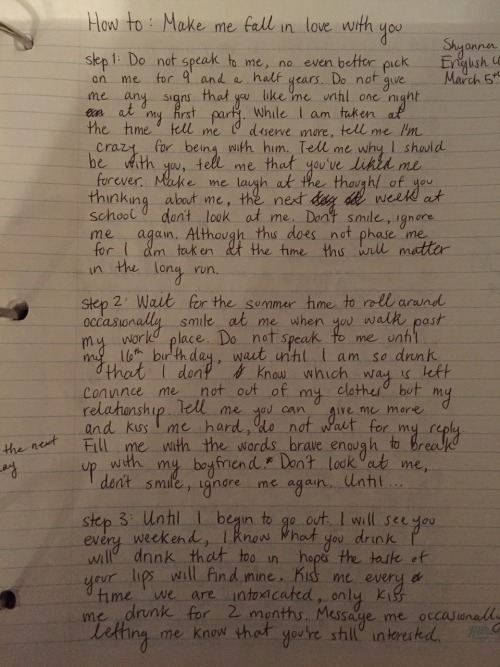 How to: Make me fall in love with you
Shyanna
English
March 5th
step 1: Do not speak to me, no even better pick
on me for 9 and a half years. Do not give
me any signs that you like me until one night
at my first party. While I am taken at
the time tell me I deserve more, tell me I'm
crazy for being with him. Tell me why I should
be with you, tell me that you've liked me
forever. Make me laugh at the thought of you
thinking about me, the next week at
school don't look at me. Don't smile, ignore
me again. Although this does not phase me
for I am taken at the time this will matter
in the long run.
step 2: Wait for the summer time to roll around
occasionally smile at me when you walk past
my work place. Do not speak to me until
my 16th birthday, wait until I am so drunk
that I dont know which way is left
convince me not out of my clothes but my
relationship. Tell me you can give me more
and kiss me hard, do not wait for my reply.
Fill me with the words brave enough to break
up with my boyfriend.* Don't look at me,
don't smile, ignore me again. Until...
the next
step 3: Until I begin to go out. I will see you
every weekend, I know what you drink I
will drink that too in hopes the taste of
your lips will find mine. Kiss me every
time we are intoxicated, only kiss
me drunk for 2 months. Message me occasionally
letting me know that you're still interested.